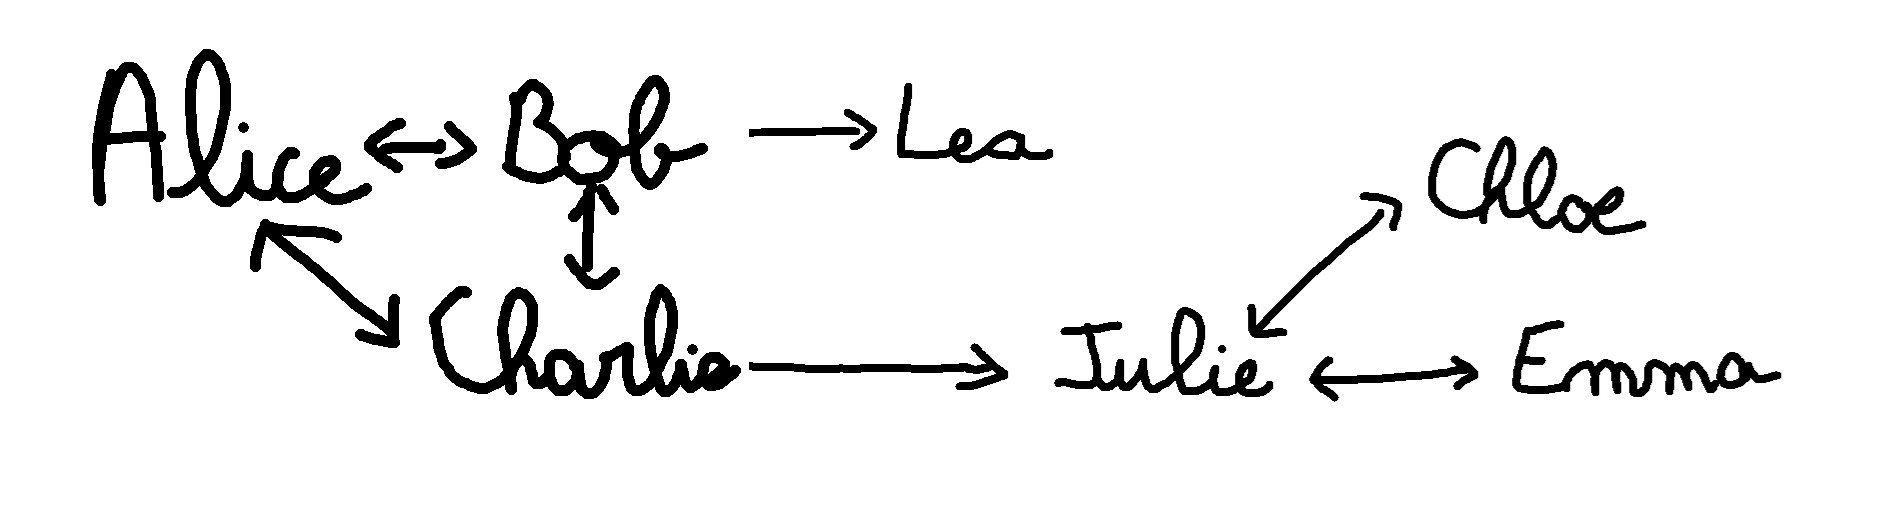 Alice Bob Lea
Chloe
Charlie Julie Emma